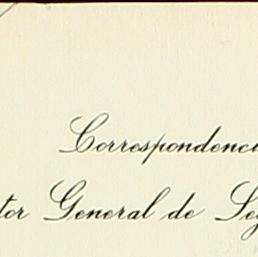 Correspondenci
tor General de Seg